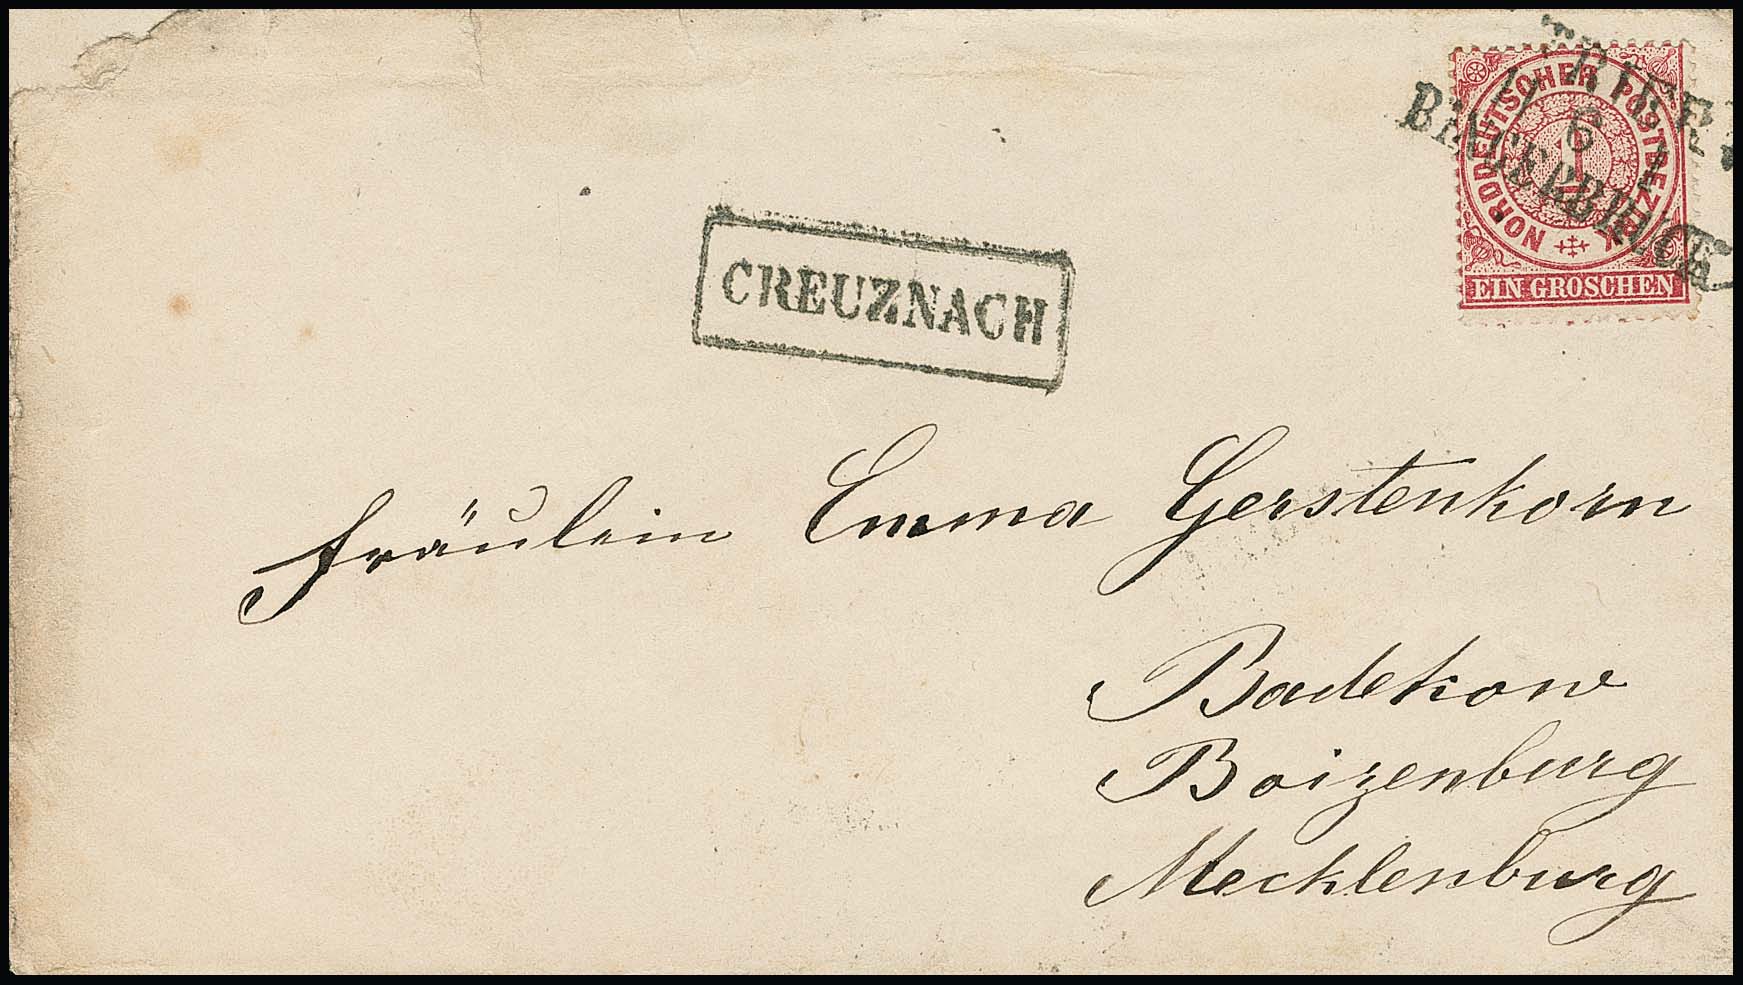 NORDDEUTSCHER POSTBEZIRK
1
EIN GROSCHEN
11 6
BINGERBRÜCK
CREUZNACH
Fräulein Emma Gerstenkorn
Badekow
Boizenburg
Mecklenburg